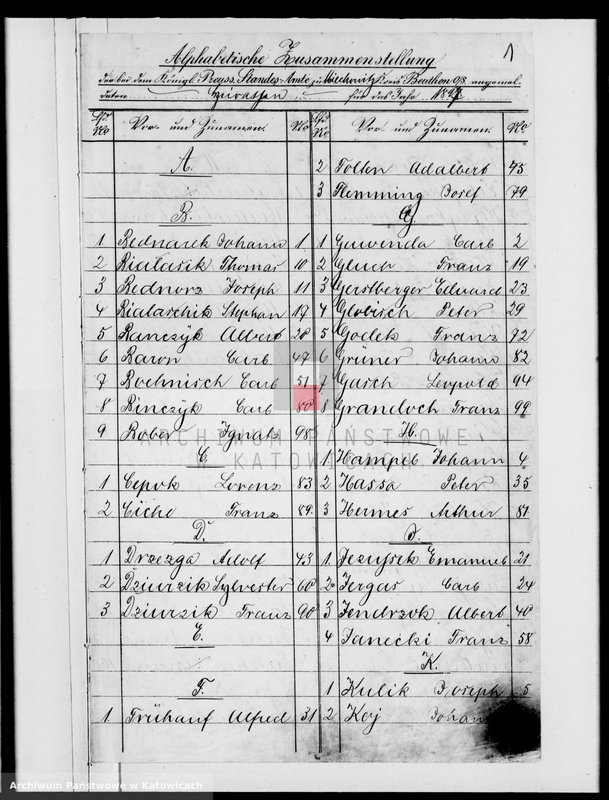 1
Alphabetische Zusammenstellung
der bei dem Königl. Preuss. Standes-Amte zu Miechowitz Kreis Beuthen O/S angemel-
deten Heirathen für das Jahr
Lfd No Vor- und Zunamen. No
A.
B.
1 Bednarek Johann 1
2 Bialasik Thomas 10
3 Bednorz Joseph 11
4 Bialaschik Stephan 17
5 Banczyk Albert 28
6 Baron Carl 47
7 Boehnisch Carl 51
8 Binczyk Carl 80
9 Bober Ignatz 98
C.
1 Cepok Lorenz 83
2 Cicho Franz 89
D.
1 Drzezga Adolf 43
2 Dziurzik Sylvester 60
3 Dziurzik Franz 90
E.
F.
1 Frühauf Alfred 31
Lfd No Vor- und Zunamen. No
2 Folten Adalbert 75
3 Flemming Josef 79
G.
1 Gawenda Carl 2
2 Gluch Franz 19
3 Gerstberger Eduard 23
4 Globisch Peter 29
5 Godek Franz 72
6 Grüner Johann 82
7 Gasch Leopold 94
8 Grandoch Franz 99
H.
1 Hampel Johann 4
2 Hassa Peter 35
3 Hermes Arthur 81
J.
1. Jezussek Emanuel 21
2. Jergas Carl 24
3 Jendrzok Albert 40
4 Janecki Franz 58
K.
1 Kulik Joseph 5
2 Koj
ARCHIWUM PAŃSTWOWE
W KATOWICACH
Archiwum Państwowe w Katowicach